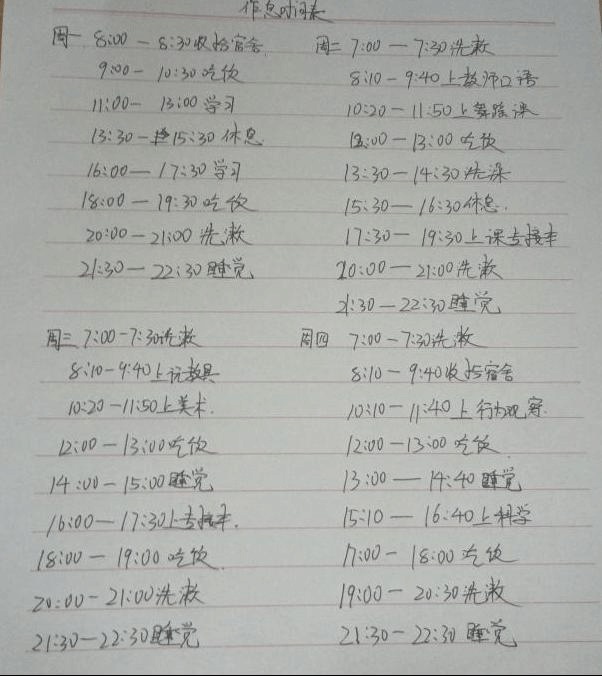 作息时间表
周一 8:00 — 8:30 收拾宿舍
9:00 — 10:30 吃饭
11:00 — 13:00 学习
13:30 — 15:30 休息
16:00 — 17:30 学习
18:00 — 19:30 吃饭
20:00 — 21:00 洗漱
21:30 — 22:30 睡觉
周二 7:00 — 7:30 洗漱
8:10 - 9:40 上教师口语
10:20 — 11:50 上舞蹈课
12:00 — 13:00 吃饭
13:30 — 14:30 洗澡
15:30 — 16:30 休息.
17:30 — 19:30 上课专接本
20:00 — 21:00 洗漱
21:30 — 22:30 睡觉
周三 7:00 - 7:30 洗漱
8:10 - 9:40 上玩教具
10:20 - 11:50 上美术.
12:00 — 13:00 吃饭
14:00 — 15:00 睡觉
16:00 — 17:30 上专接本.
18:00 — 19:00 吃饭
20:00 - 21:00 洗漱
21:30 — 22:30 睡觉
周四 7:00 - 7:30 洗漱
8:10 — 9:40 收拾宿舍
10:10 — 11:40 上行为观察.
12:00 — 13:00 吃饭
13:00 — 14:40 睡觉
15:10 — 16:40 上科学
17:00 - 18:00 吃饭
19:00 — 20:30 洗漱
21:30 — 22:30 睡觉